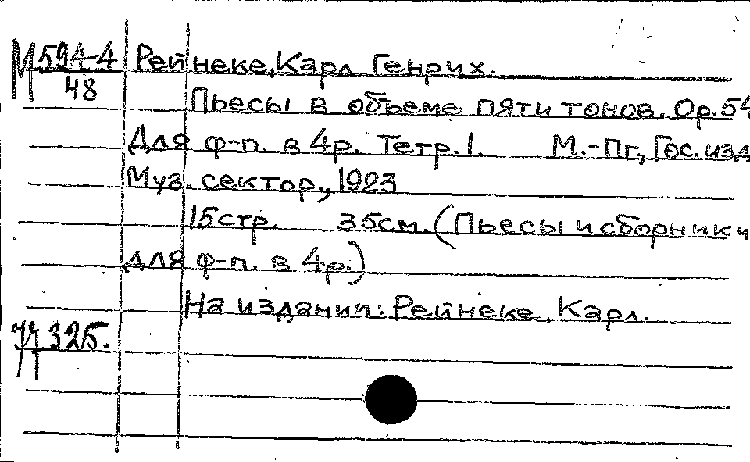 М 594-4 Рейнеке, Карл Генрих.
48
Пьесы в объеме пяти тонов. Ор. 54
Для ф-п. в 4р. Тетр. 1. М.-Пг, Гос. изд
Муз. сектор, 1923
15стр. 35см. (Пьесы и сборники
для ф-п. в 4р.)
На издании: Рейнеке, Карл.
325.